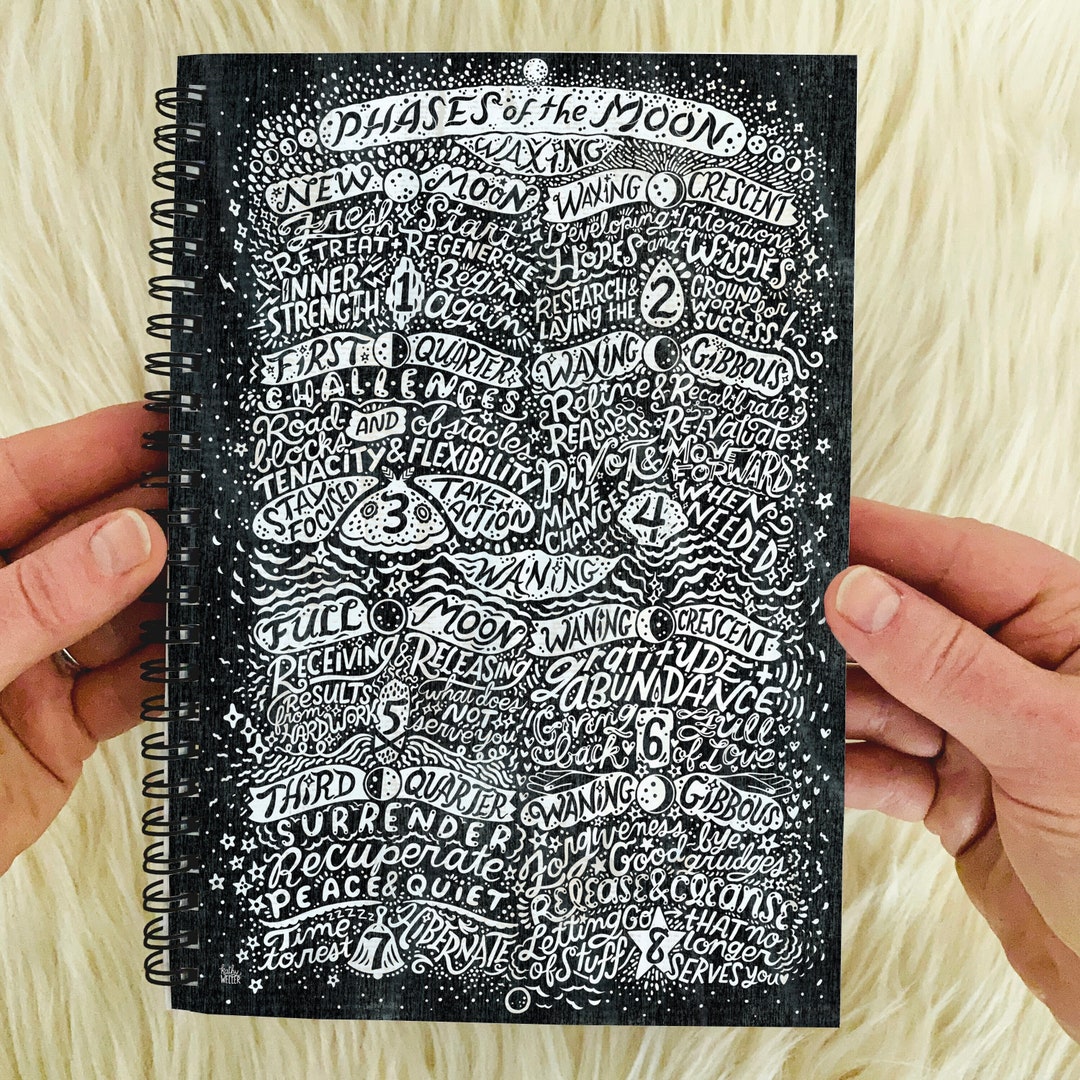 PHASES of the MOON
WAXING
NEW MOON
Fresh Start
RETREAT + REGENERATE
INNER STRENGTH
1
Begin again
WAXING CRESCENT
Developing Intentions
HOPES and WISHES
RESEARCH & LAYING THE
2
GROUND WORK for SUCCESS
FIRST QUARTER
CHALLENGES
Road blocks AND obstacles
TENACITY & FLEXIBILITY
STAY FOCUSED
3
TAKE ACTION
WAXING GIBBOUS
Refine & Recalibrate
REASSESS RE-Evaluate
PIVOT & MOVE FORWARD
MAKE CHANGES
4
WHEN NEEDED
WANING
FULL MOON
RECEIVING & RELEASING
RESULTS from HARDWORK
5
what does NOT serve you
WANING CRESCENT
gratitude +
ABUNDANCE
Giving back
6
full of Love
THIRD QUARTER
SURRENDER
Recuperate
PEACE & QUIET
zzzzz
Time to rest
7
HIBERNATE
WANING GIBBOUS
forgiveness, bye
Good grudges
RELEASE & CLEANSE
Letting GO of Stuff
8
THAT no longer SERVES you
Kathy WELLER